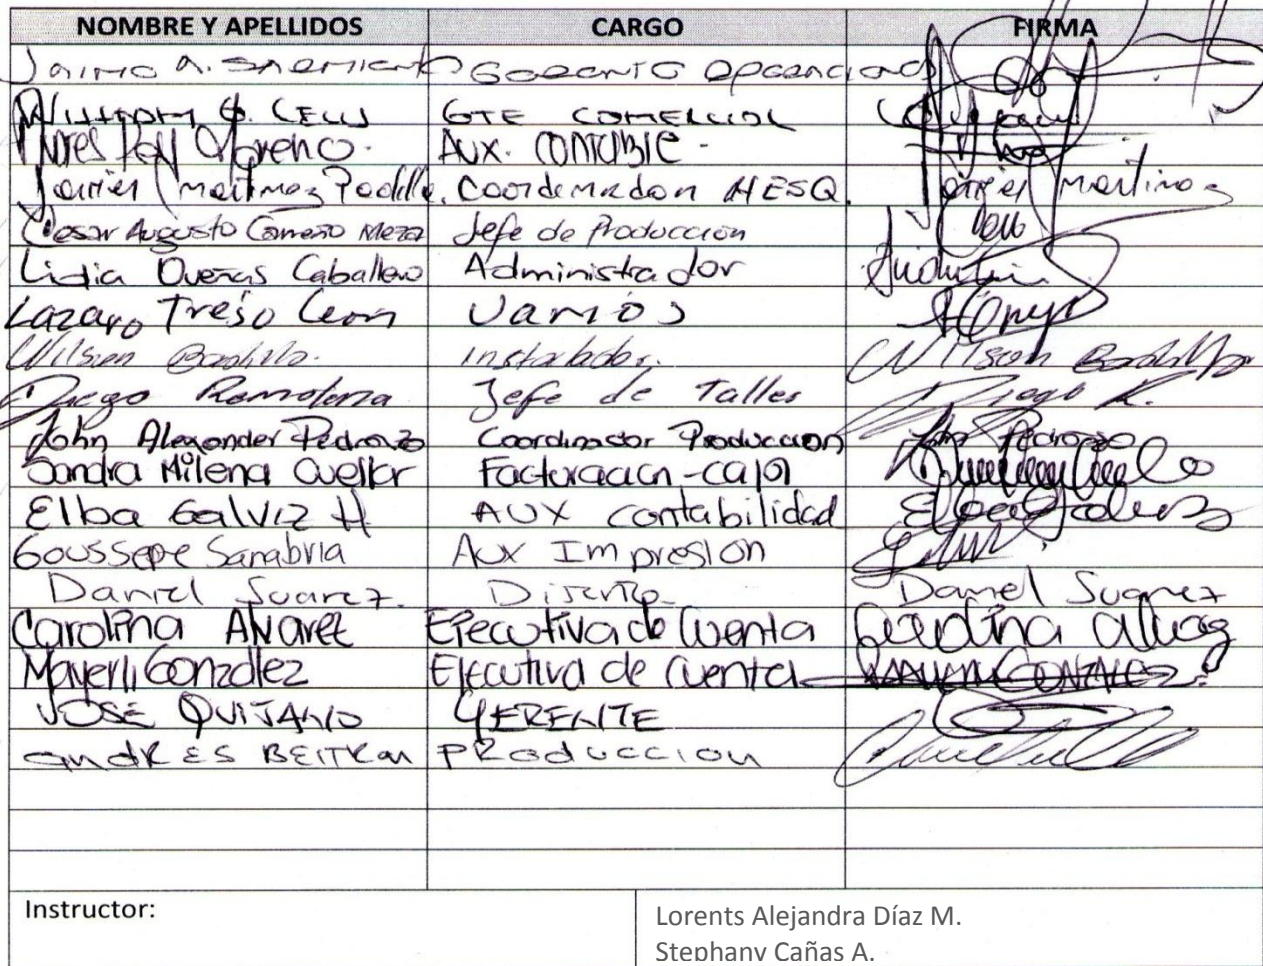 NOMBRE Y APELLIDOS CARGO FIRMA
Jaime A. Sarmiento Gerente Operaciones
William G. Celis GTE COMERCIAL
Moreno. Aux. contable.
Javier Martinez Padilla. Coordinador HESQ. Javier Martinez
Cesar Augusto Meza Jefe de Produccion
Lidia Dueñas Caballero Administrador
Lazaro Leon Varios
Wilson Badillo. Instalador. Wilson Badillo
Diego Jefe de Taller Diego R.
John Alexander Pedrozo Coordinador Produccion John Pedrozo
Sandra Milena Cuellar Facturacion-caja
Elba Galviz H AUX contabilidad Elba Galviz
Goussepe Sanabria Aux Impresion
Daniel Suarez. Diseño Daniel Suarez
Carolina Alvarez Ejecutiva de Cuenta Carolina
Mayerli González Ejecutiva de cuenta GONZALEZ
JOSE QUIJANO GERENTE
andRES BEltRan PRoduccion
Instructor: Lorents Alejandra Díaz M.
Stephany Cañas A.